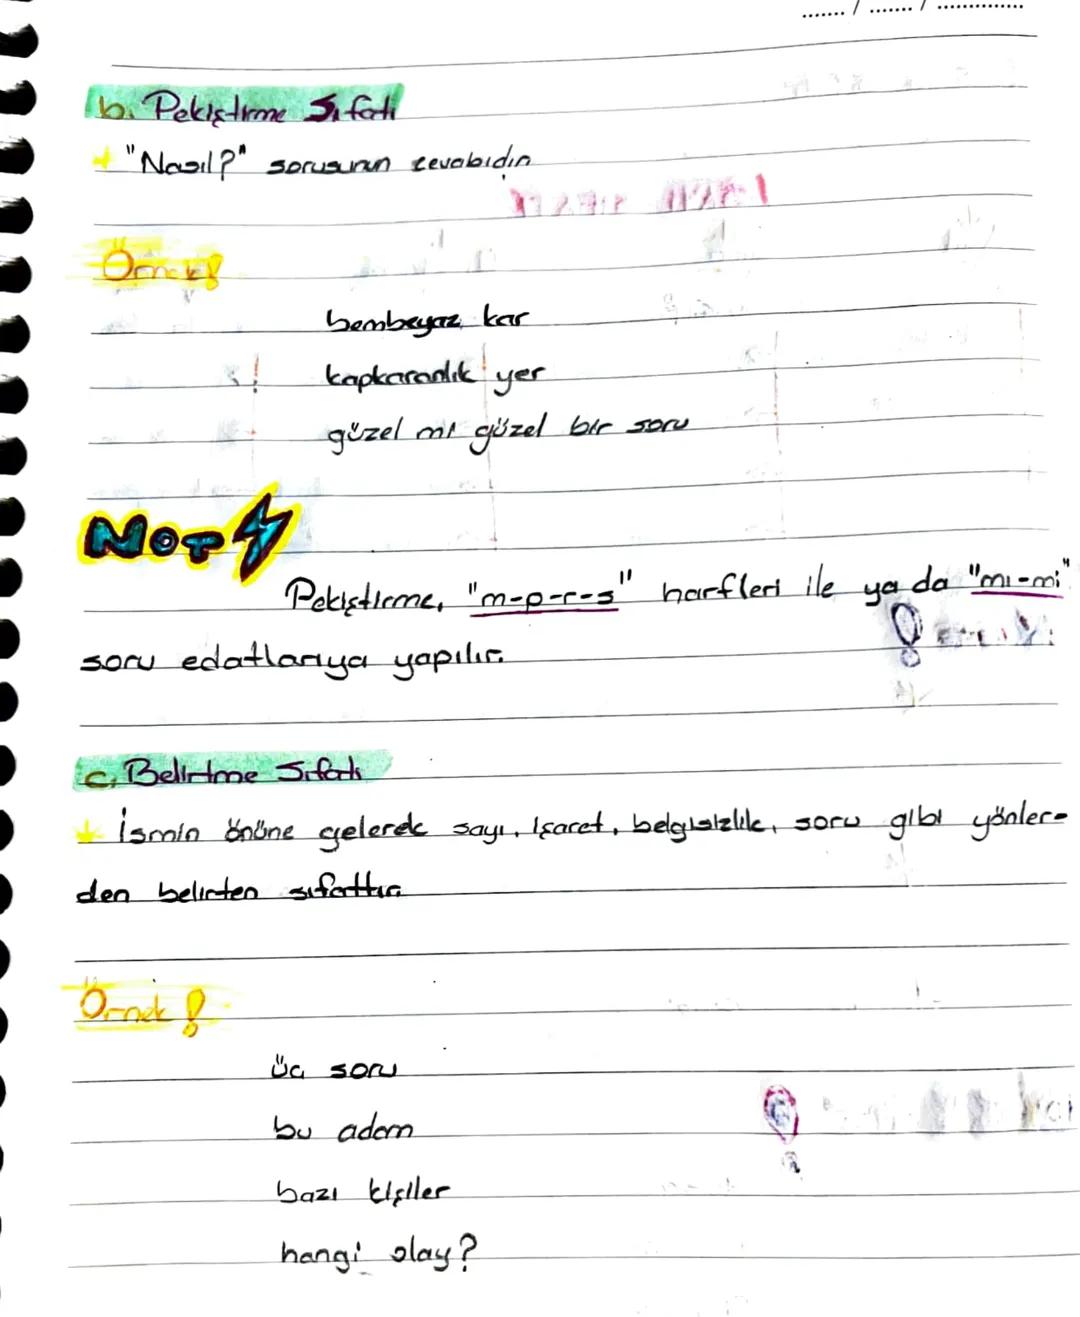 b. Pekiştirme Sıfatı
"Nasıl?" sorusunun cevabıdır.
Örnek!
bembeyaz kar
kapkaranlık yer
güzel mi güzel bir soru
NOT
Pekiştirme, "m-p-r-s" harfleri ile ya da "mı-mi"
soru edatlarıya yapılır.
c. Belirtme Sıfatı
İsmin önüne gelerek sayı, işaret, belgisizlik, soru gibi yönler-
den belirten sıfattır.
Örnek!
üç soru
bu adam
bazı kişiler
hangi olay?